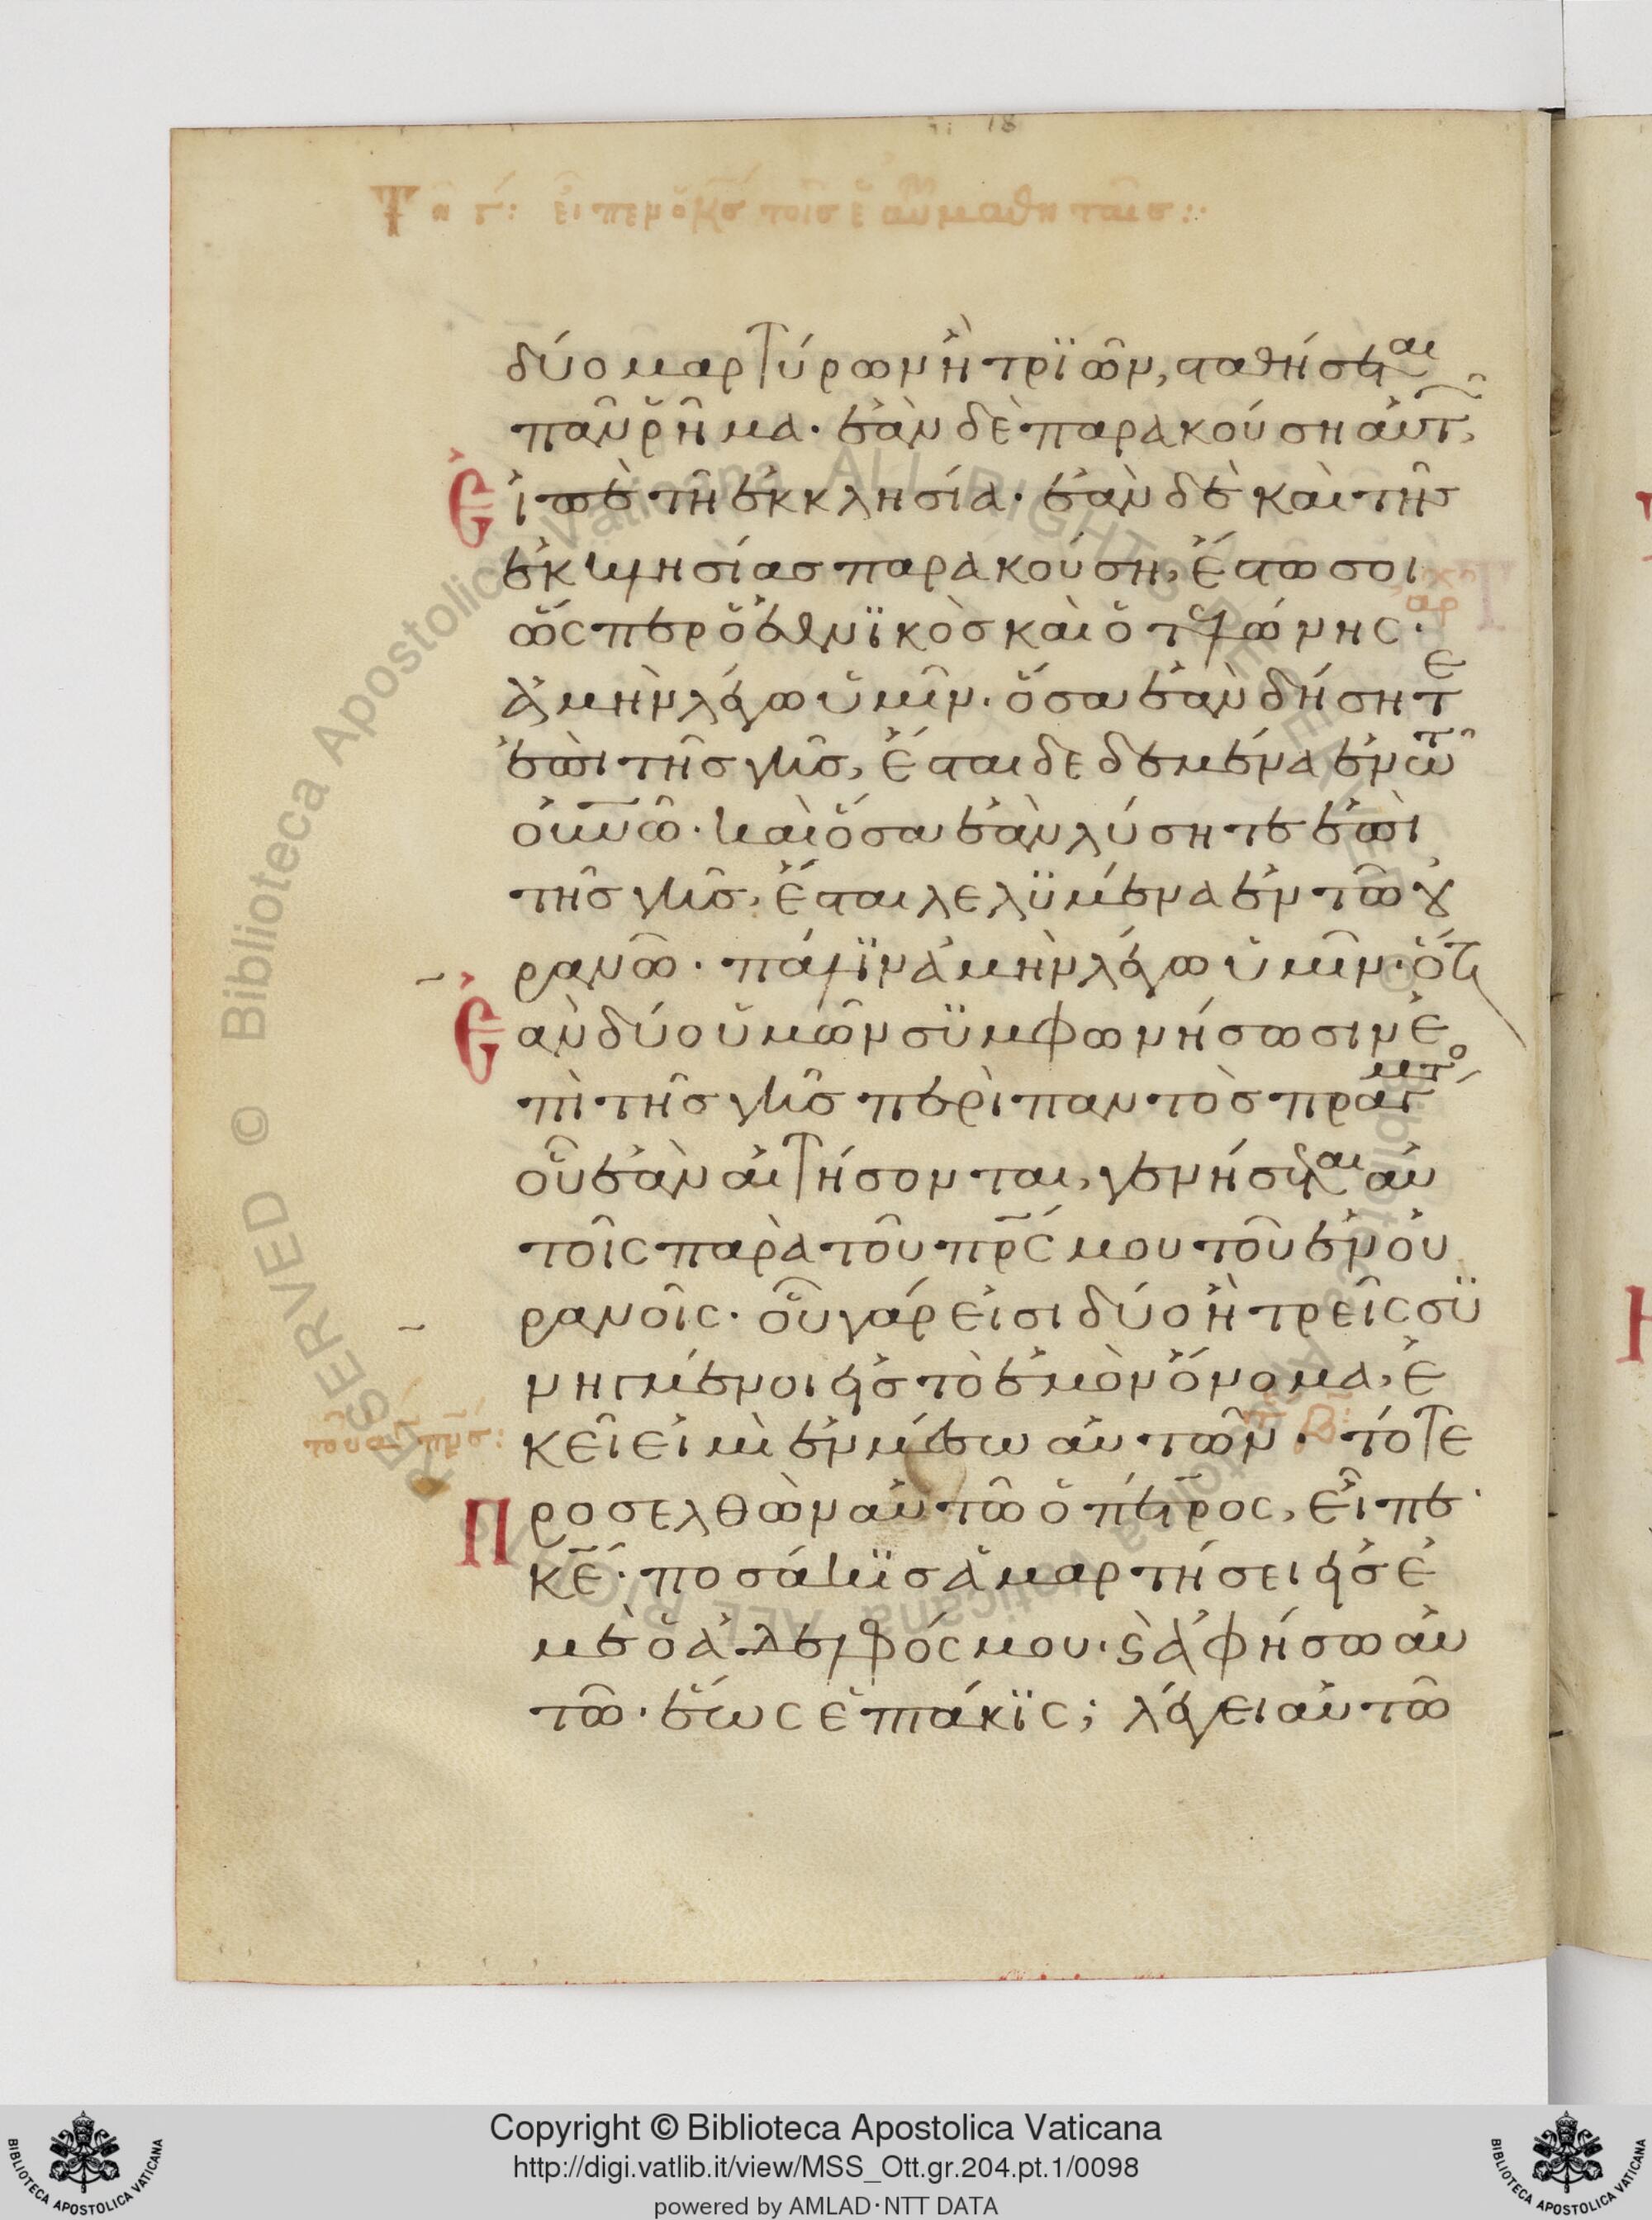 εἶπεν ὁ κς τοῖς ἑαυτοῦ μαθηταῖς:
δύο μαρτύρων ἢ τρϊῶν, σταθήσεται
πᾶν ῥῆμα. ἐὰν δὲ παρακούση αὐτῶν,
Εἰπὲ τῆ ἐκκλησία. ἐὰν δὲ καὶ τῆς
ἐκκλησίας παρακούση, ἔστω σοι
ὥσπερ ὁ ἐθνϊκὸς καὶ ὁ τελώνης.
ἀμὴν λέγω ὑμῖν. ὅσα ἐὰν δήσητε
ἐπὶ τῆς γῆς, ἔσται δεδεμένα ἐν τῶ
οὐνῶ. καὶ ὅσα ἐὰν λύσητε ἐπὶ
τῆς γῆς, ἔσται λελϋμένα ἐν τῶ οὐ
ρανῶ. πάλϊν ἀμὴν λέγω ὑμῖν. ὅτι
Ἐὰν δύο ὑμῶν σϋμφωνήσωσιν ἐ
πὶ τῆς γῆς περὶ παντὸς πράγματος
οὗ ἐὰν αἰτήσονται, γενήσεται αὐ
τοῖς παρὰ τοῦ πρς μου τοῦ ἐν οὐ
ρανοῖς. οὗ γάρ εἰσι δύο ἢ τρεῖς σϋ
νηγμένοι εἰς τὸ ἐμὸν ὄνομα, ἐ
κεῖ εἰμὶ ἐν μέσω αὐτῶν. τότε
Προσελθὼν αὐτῶ ὁ πέτρος, εἶπε·
κε. ποσάκϊς ἁμαρτήσει εἰς ἐ
μὲ ὁ ἀδελφός μου. ϛ ἀφήσω αὐ
τῶ. ἕως ἑπτάκϊς; λέγει αὐτῶ
RESERVED © Biblioteca Apostolica Vaticana ALL RIGHTS RESERVED © Biblioteca Apostolica Vaticana ALL RIGHTS
Copyright © Biblioteca Apostolica Vaticana
http://digi.vatlib.it/view/MSS_Ott.gr.204.pt.1/0098
powered by AMLAD·NTT DATA
BIBLIOTECA APOSTOLICA VATICANA
BIBLIOTECA APOSTOLICA VATICANA